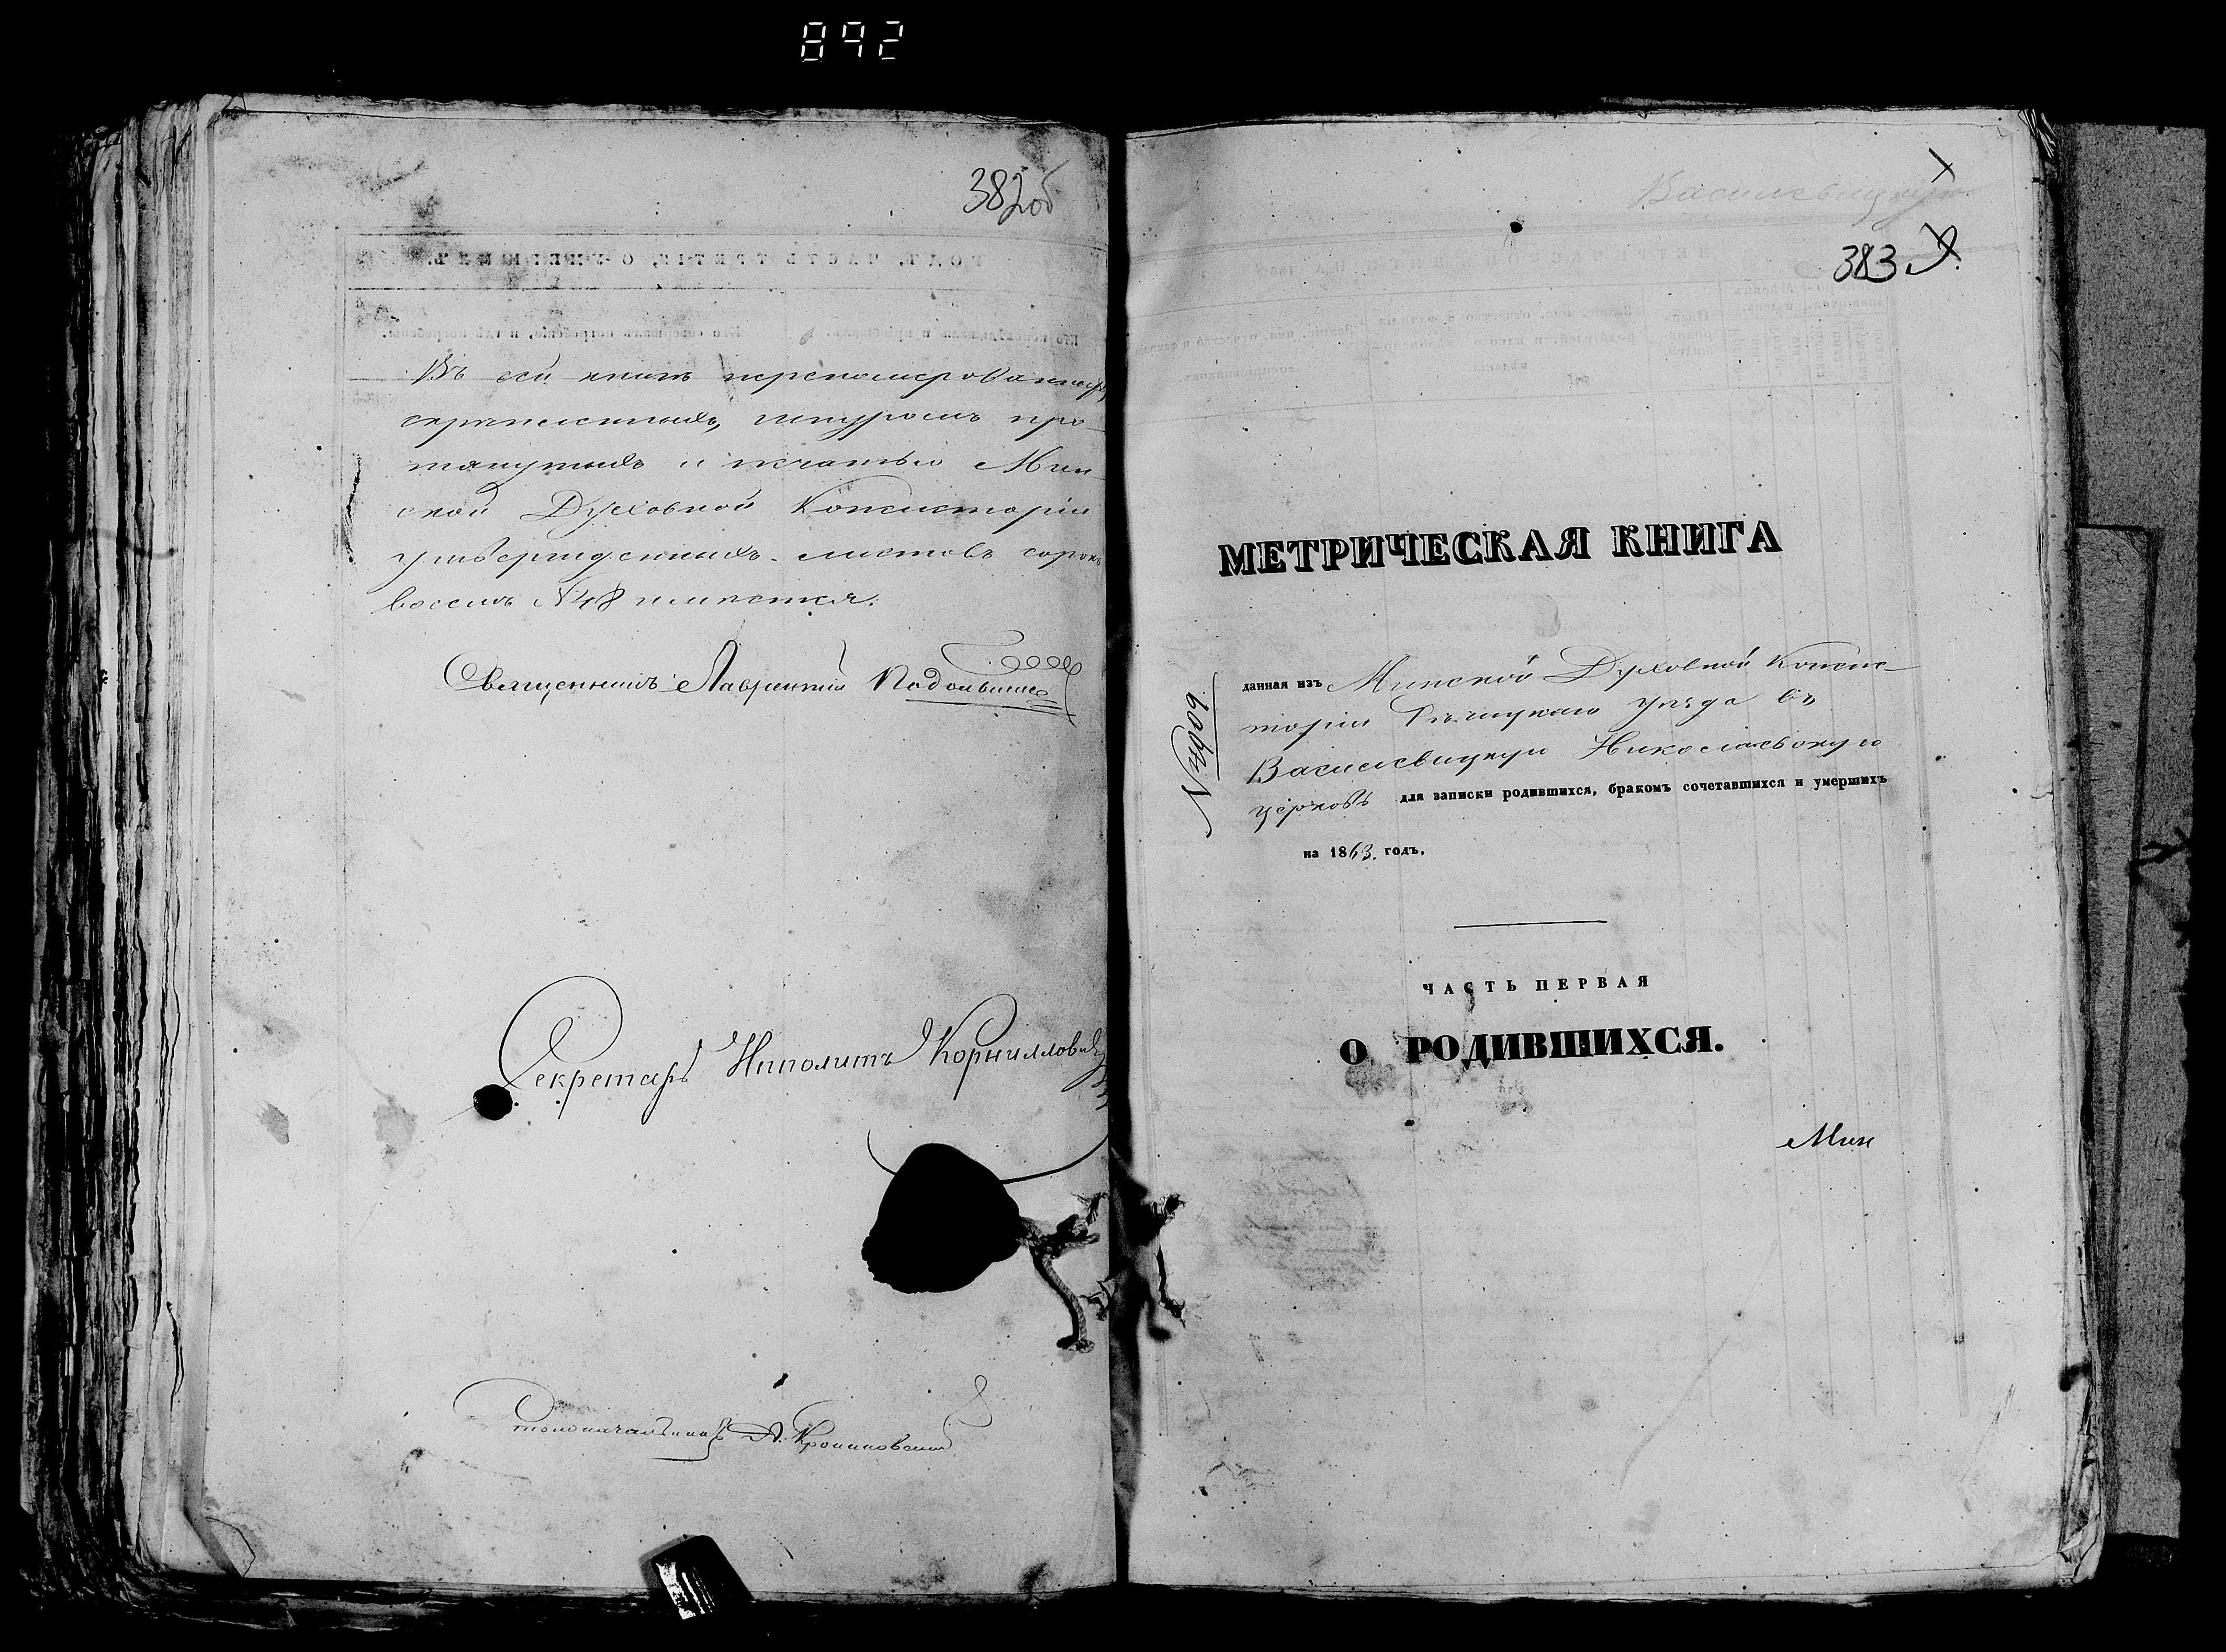 892
382об
Въ сей книгѣ перенумерованныхъ,
скрѣпленныхъ, шнуромъ про-
тянутыхъ и печатью Мин-
ской Духовной Консисторіи
утвержденныхъ листовъ сорокъ
восемь № 48 имѣется.
Священникъ Лаврентій
Секретарь Ипполитъ Корнилловичъ
Столоначальникъ А.
Василевицкую
383
МЕТРИЧЕСКАЯ КНИГА
данная изъ Минской Духовной Консис-
торіи Рѣчицкаго уѣзда въ
Василевицкую Николаевскую
церковь для записки родившихся, бракомъ сочетавшихся и умершихъ
на 1863. годъ.
ЧАСТЬ ПЕРВАЯ
О РОДИВШИХСЯ.
Мин